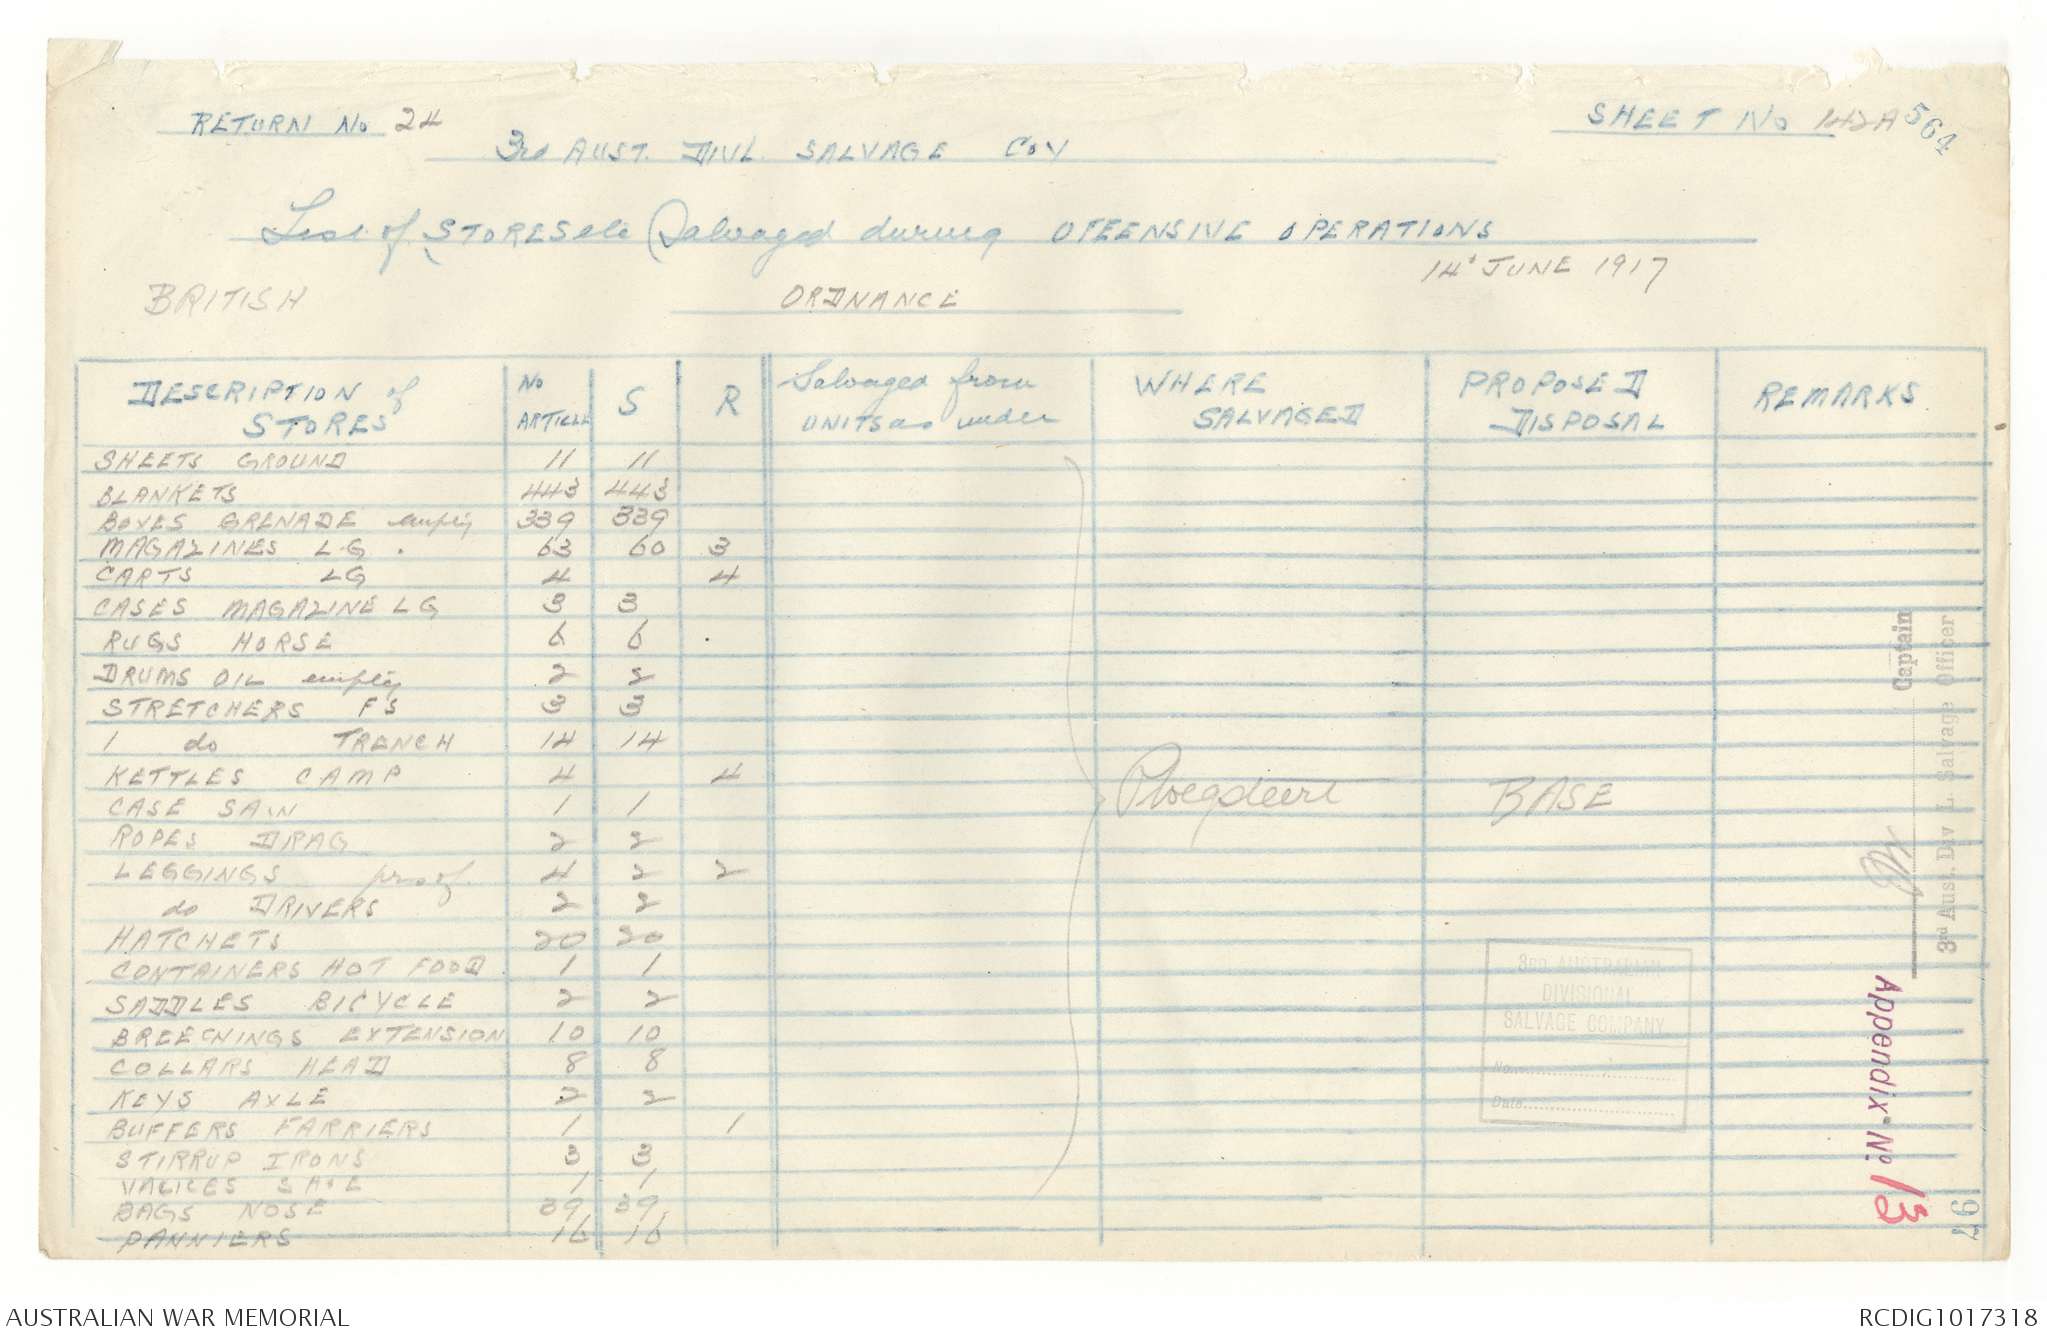 RETURN No 24
SHEET No 142A
564
3rd AUST. DIVL SALVAGE COY
List of STORES etc Salvaged during OFFENSIVE OPERATIONS
14th JUNE 1917
BRITISH
ORDNANCE
DESCRIPTION of STORES | No ARTICLE | S | R | Salvaged from UNITS as under | WHERE SALVAGED | PROPOSED DISPOSAL | REMARKS
SHEETS GROUND 11 11
BLANKETS 443 443
BOXES GRENADE empty 339 339
MAGAZINES LG. 63 60 3
CARTS LG 4 4
CASES MAGAZINE LG 3 3
RUGS HORSE 6 6
DRUMS OIL empty 2 2
STRETCHERS FS 3 3
1 do TRENCH 14 14
KETTLES CAMP 4 4
Ploegdeert BASE
CASE SAW 1 1
ROPES DRAG 2 2
LEGGINGS proof 4 2 2
do DRIVERS 2 2
HATCHETS 20 20
CONTAINERS HOT FOOD 1 1
SADDLES BICYCLE 2 2
BREECHINGS EXTENSION 10 10
COLLARS HEAD 8 8
KEYS AXLE 2 2
BUFFERS FARRIERS 1 1
STIRRUP IRONS 3 3
VALICES 1 1
BAGS NOSE 39 39
PANNIERS 16 16
3RD AUSTRALIAN
DIVISIONAL
SALVAGE COMPANY
No.
Date
Captain
3rd Aust. Div L. Salvage Officer
Appendix No 13
97
AUSTRALIAN WAR MEMORIAL
RCDIG1017318